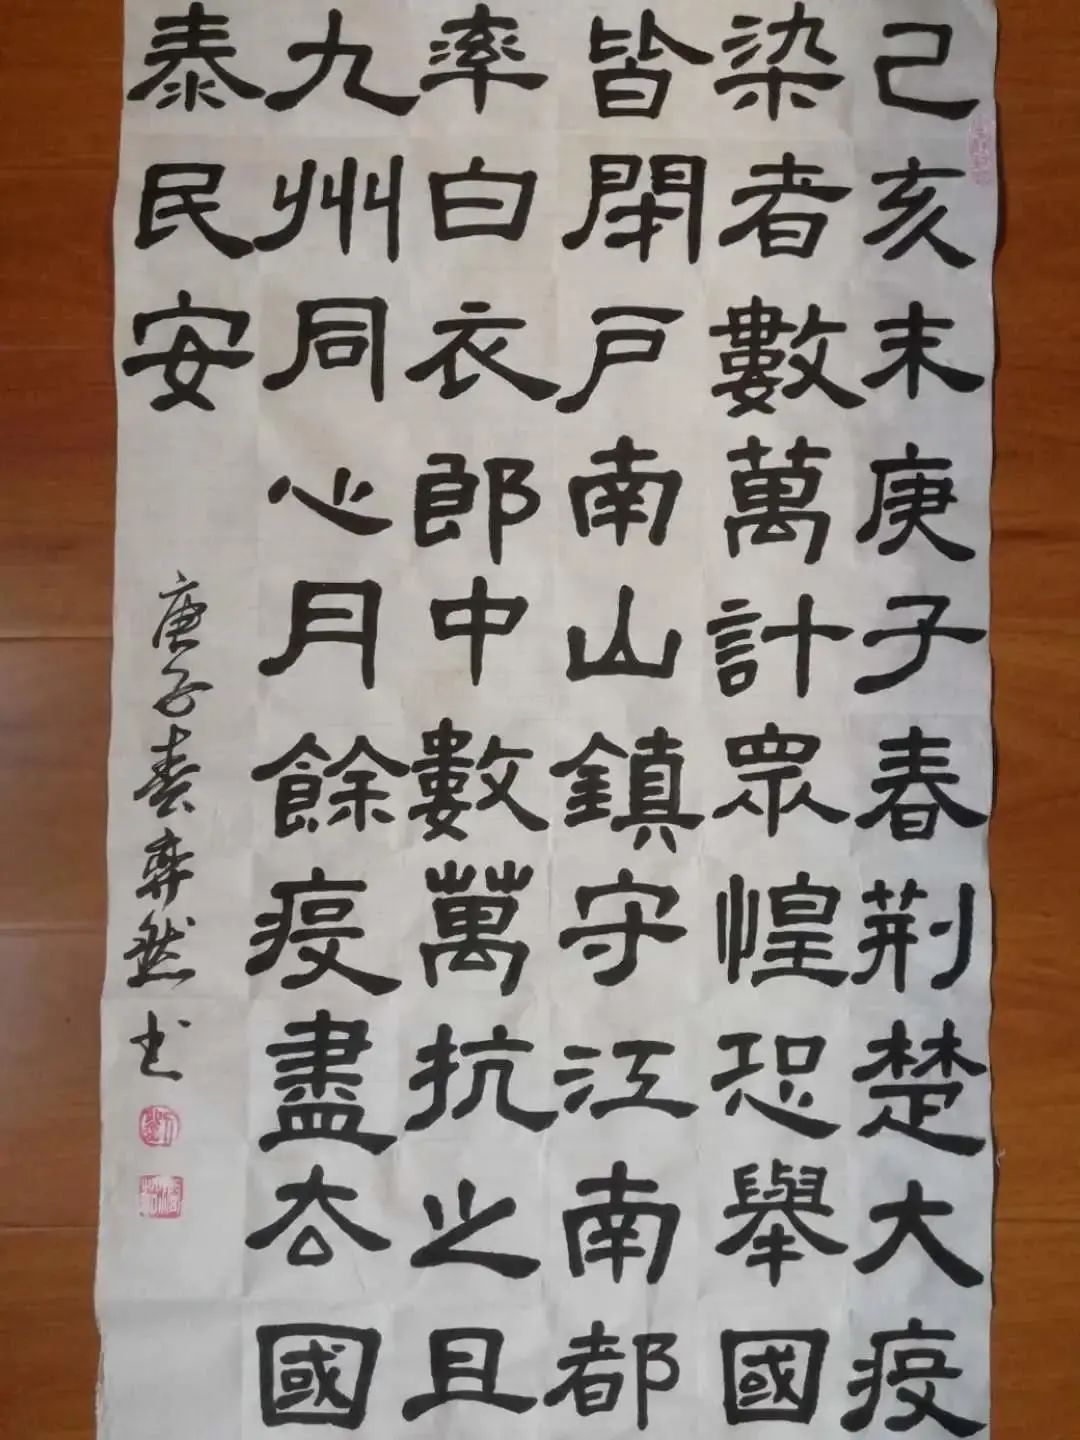 己亥末庚子春荆楚大疫
染者數萬計眾惶恐舉國
皆閉户南山鎮守江南都
率白衣郎中數萬抗之且
九州同心月餘疫盡去國
泰民安
庚子春弈然书